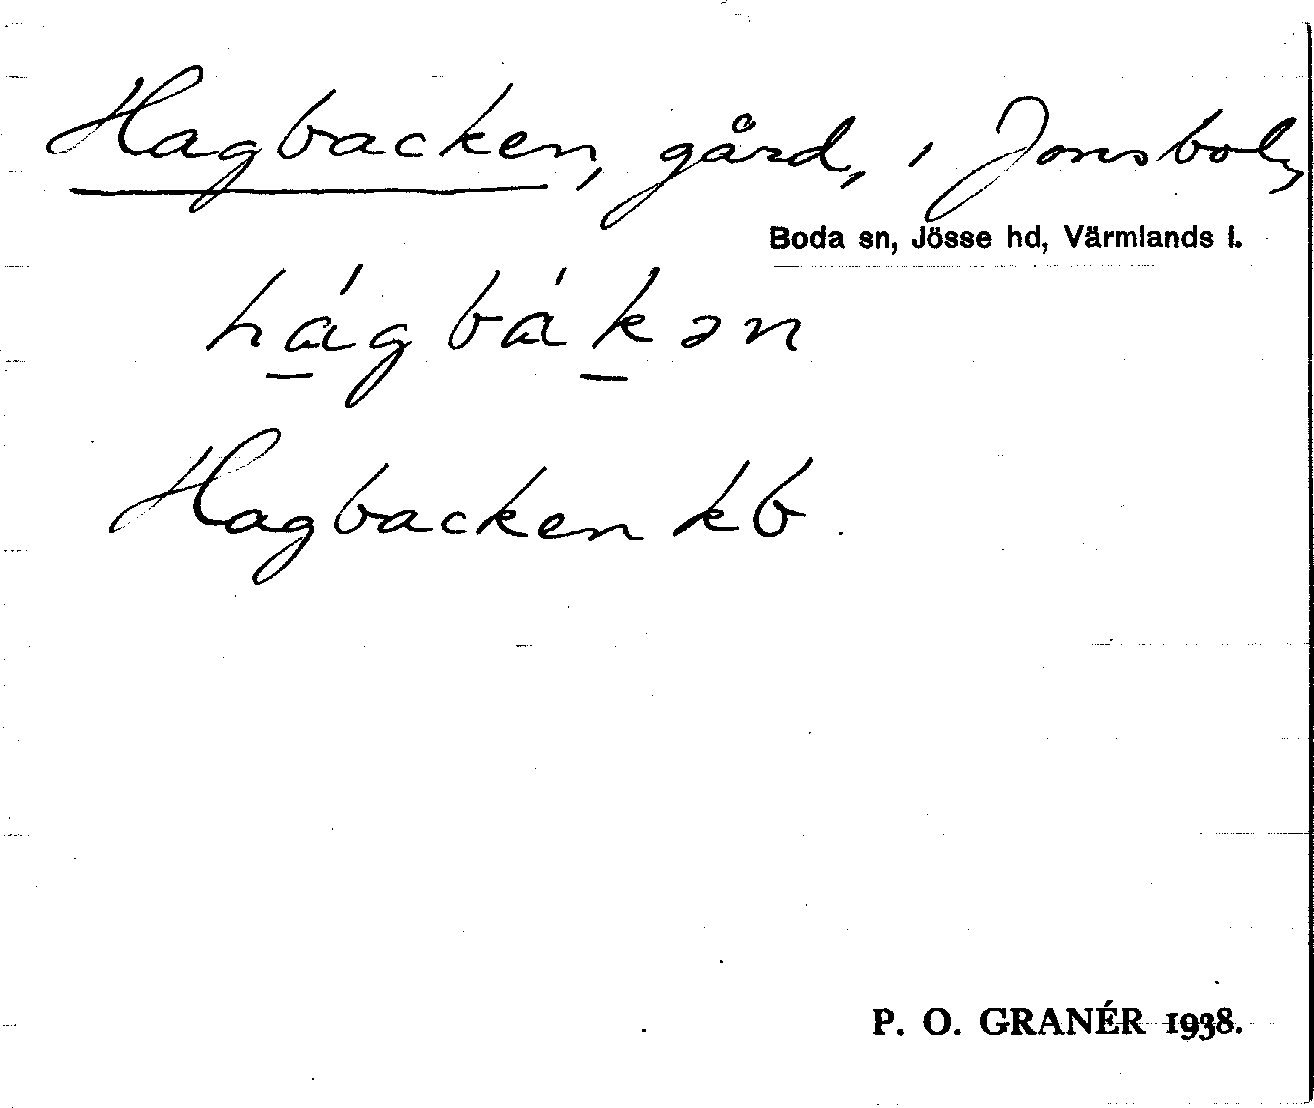 Hagbacken, gård, i Jonsbol,
Boda sn, Jösse hd, Värmlands l.
há̠gbák̠ən
Hagbacken kb.
P. O. GRANÉR 1938.